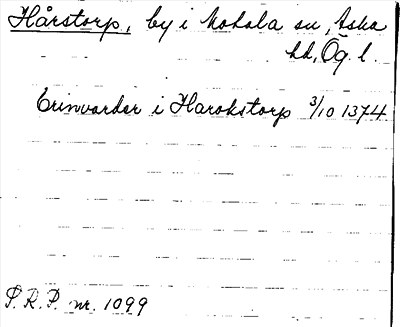 Hårstorp, by i Motala sn, Aska
hd, Ög. l.
Erinvarder i Harokstorp 3/10 1374
P. R. P. nr. 1099